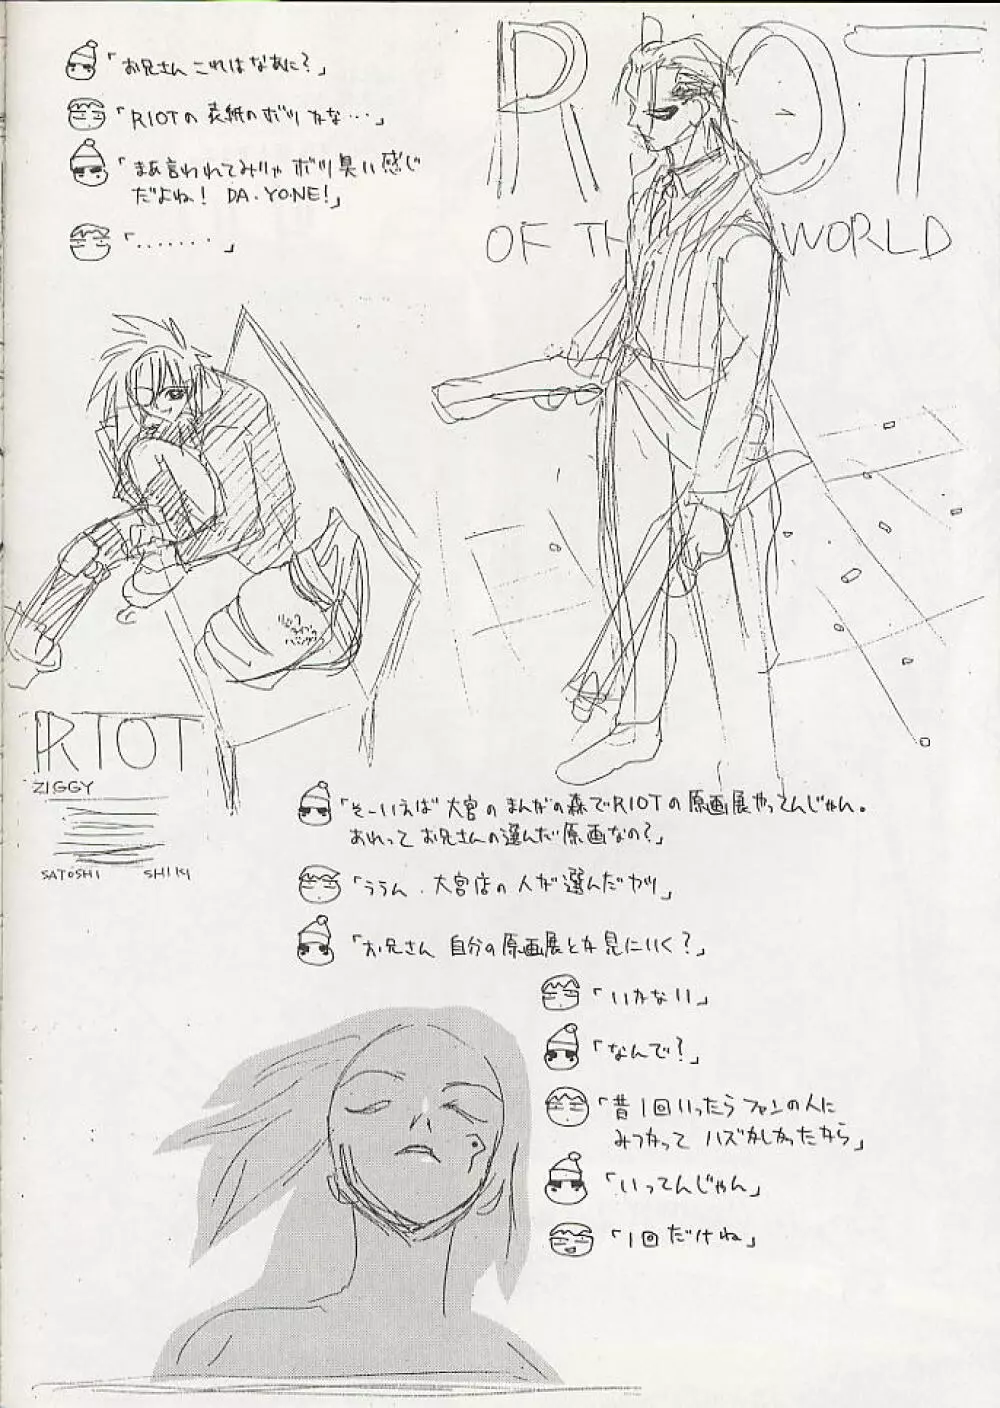 「お兄さん これは なあに?」
「RIOTの 表紙の ボツ かな…」
「まあ言われてみりゃ ボツ臭い感じ
だよね! DA.YO.NE!」
「・・・・・・・」
RIOT
OF TH WORLD
RIOT
ZIGGY
SATOSHI SHIKI
「そーいえば 大宮の まんがの森でRIOTの 原画展やってんじゃん。
あれって お兄さんの選んだ原画なの?」
「ううん、大宮店の 人が選んだヤツ」
「お兄さん 自分の原画展とか 見にいく?」
「いかない」
「なんで?」
「昔1回いったら ファンの人に
みつかって ハズかしかったから」
「いってんじゃん」
「1回だけね」